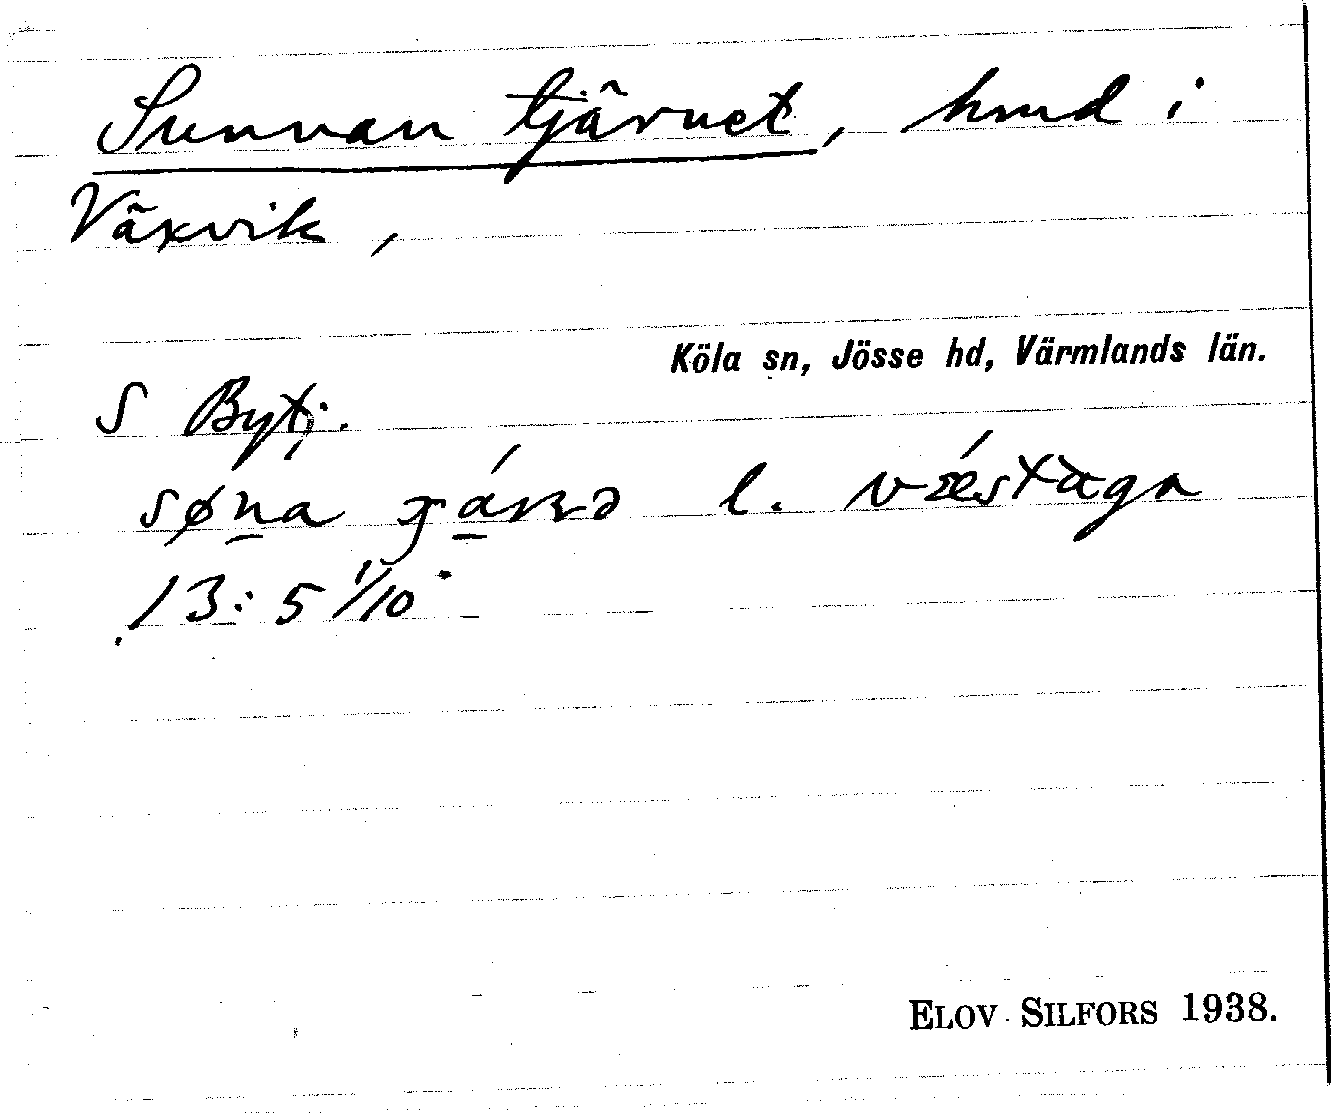 Sunnan tjärnet, hmd i
Växvik,
Köla sn, Jösse hd, Värmlands län.
S Bytj.
søna l. væstaga
13:5 1/10
ELOV SILFORS 1938.